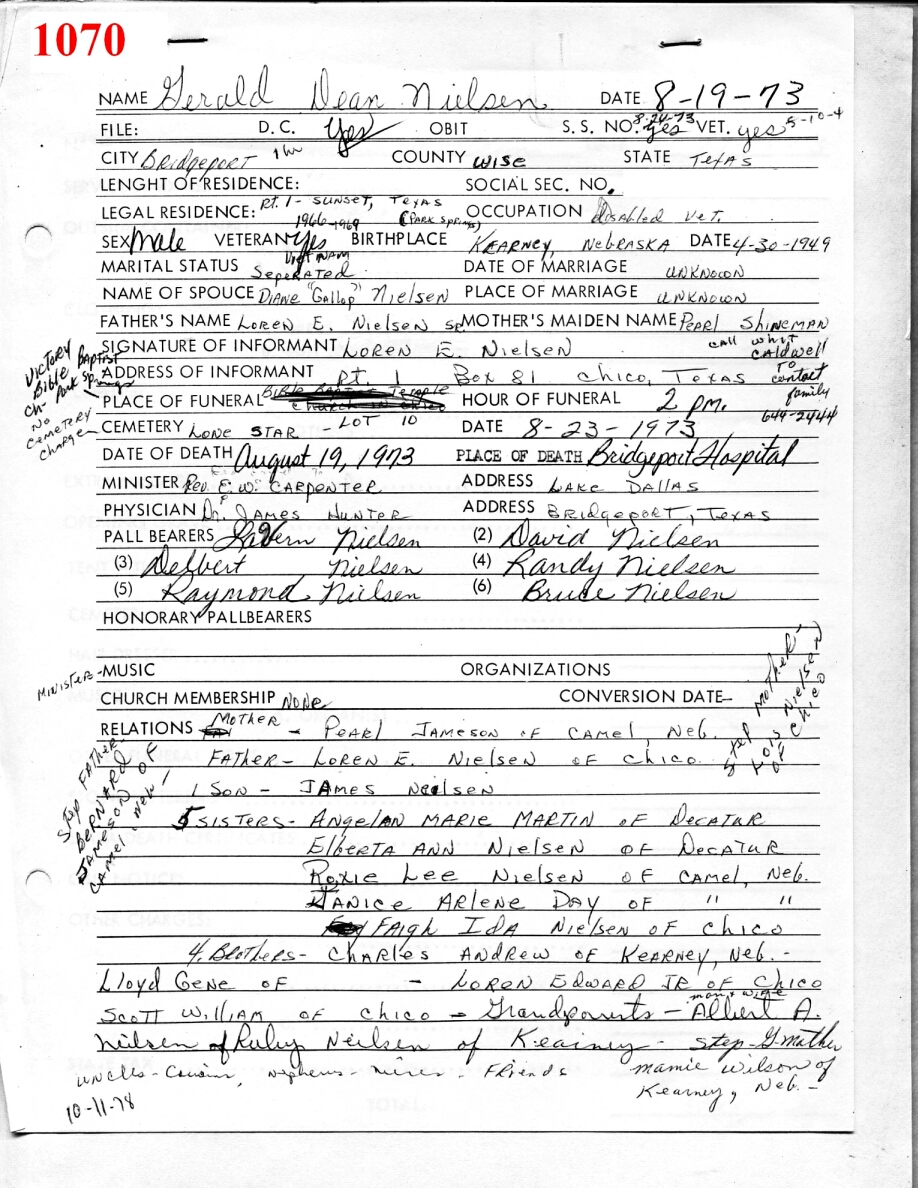 1070
NAME Gerald Dean Nielsen DATE 8-19-73
FILE: D.C. Yes OBIT S.S. NO. 8-24-73 yes VET. yes 5-10-4
CITY Bridgeport 1 hr COUNTY WISE STATE TEXAS
LENGHT OF RESIDENCE: SOCIAL SEC. NO.
LEGAL RESIDENCE: Rt. 1 - SUNSET, TEXAS (PARK SPRINGS) OCCUPATION Disabled Vet.
1966-1969
SEX Male VETERAN Yes BIRTHPLACE KEARNEY, NEBRASKA DATE 4-30-1949
VIET NAM
MARITAL STATUS SEPERATED DATE OF MARRIAGE UNKNOWN
NAME OF SPOUCE DIANE "Gallop" Nielsen PLACE OF MARRIAGE UNKNOWN
FATHER'S NAME LOREN E. Nielsen SR MOTHER'S MAIDEN NAME PEARL SHINEMAN
SIGNATURE OF INFORMANT LOREN E. NIELSEN
CALL WHIT CALDWELL TO CONTACT family 644-2444
ADDRESS OF INFORMANT Rt. 1 Box 81 CHICO, TEXAS
VICTORY Bible Baptist Ch- Park Springs
NO CEMETERY CHARGE
PLACE OF FUNERAL BIBLE BAPTIST Temple HOUR OF FUNERAL 2 pm.
CHURCH IN CHICO
CEMETERY LONE STAR - LOT 10 DATE 8-23-1973
DATE OF DEATH August 19, 1973 PLACE OF DEATH Bridgeport Hospital
MINISTER Rev. E. W. CARPENTER ADDRESS LAKE DALLAS
PHYSICIAN Dr. JAMES HUNTER ADDRESS BRIDGEPORT, TEXAS
PALL BEARERS LaVern Nielsen (2) David Nielsen
(3) Delbert Nielsen (4) Randy Nielsen
(5) Raymond Nielsen (6) Bruce Nielsen
HONORARY PALLBEARERS
MINISTER - MUSIC ORGANIZATIONS
CHURCH MEMBERSHIP NONE CONVERSION DATE-
RELATIONS MOTHER - PEARL JAMESON OF CAMEL, Neb.
STEP MOTHER! LOIS NIELSEN OF CHICO
FATHER - LOREN E. Nielsen OF CHICO
STEP FATHER BERNARD JAMESON OF CAMEL, NEB!
1 SON - JAMES Nielsen
5 SISTERS - ANGELAN MARIE MARTIN OF DECATUR
ElBERTA ANN Nielsen OF DECATUR
Roxie Lee Nielsen OF CAMEL, Neb.
JANICE ARLENE DAY OF " "
FAIGH IDA Nielsen OF CHICO
4. BROTHERS - CHARLES ANDREW OF KEARNEY, Neb. -
Lloyd GENE OF - LOREN EDWARD JR OF CHICO
SCOTT William OF CHICO - Grandparents - Albert A.
Neilsen & Ruby Neilsen of Kearney - step-G-mother
UNCLES - Cousins, Nephews - Nieces - FRIENDS mamie Wilson of
Kearney, Neb. -
10-11-78